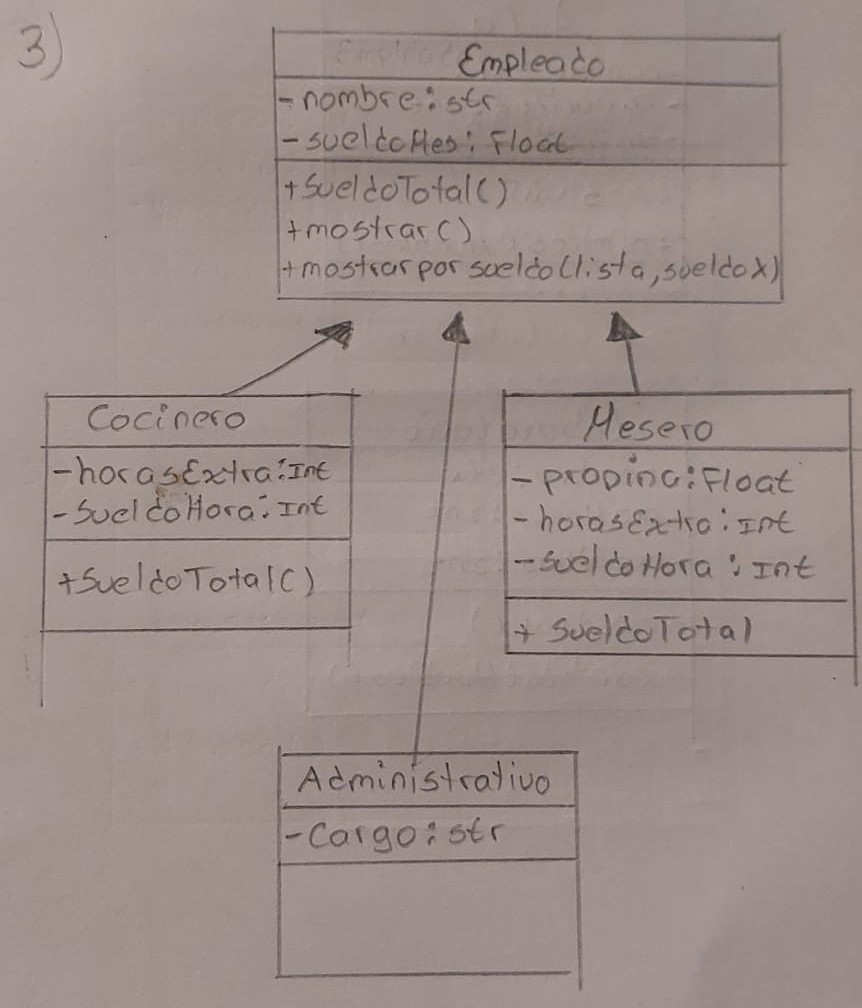 3)
Empleado
- nombre: str
- sueldoMes: Float
+ SueldoTotal()
+ mostrar()
+ mostrar por sueldo(lista, sueldoX)
Cocinero
- horasExtra: Int
- SueldoHora: Int
+ SueldoTotal()
Mesero
- propina: Float
- horasExtra: Int
- SueldoHora: Int
+ SueldoTotal
Administrativo
- Cargo: str